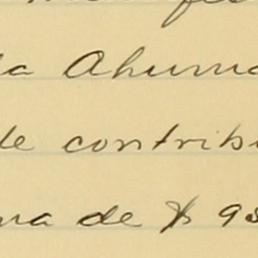 la Ahuma
de contribu
na de $ 93